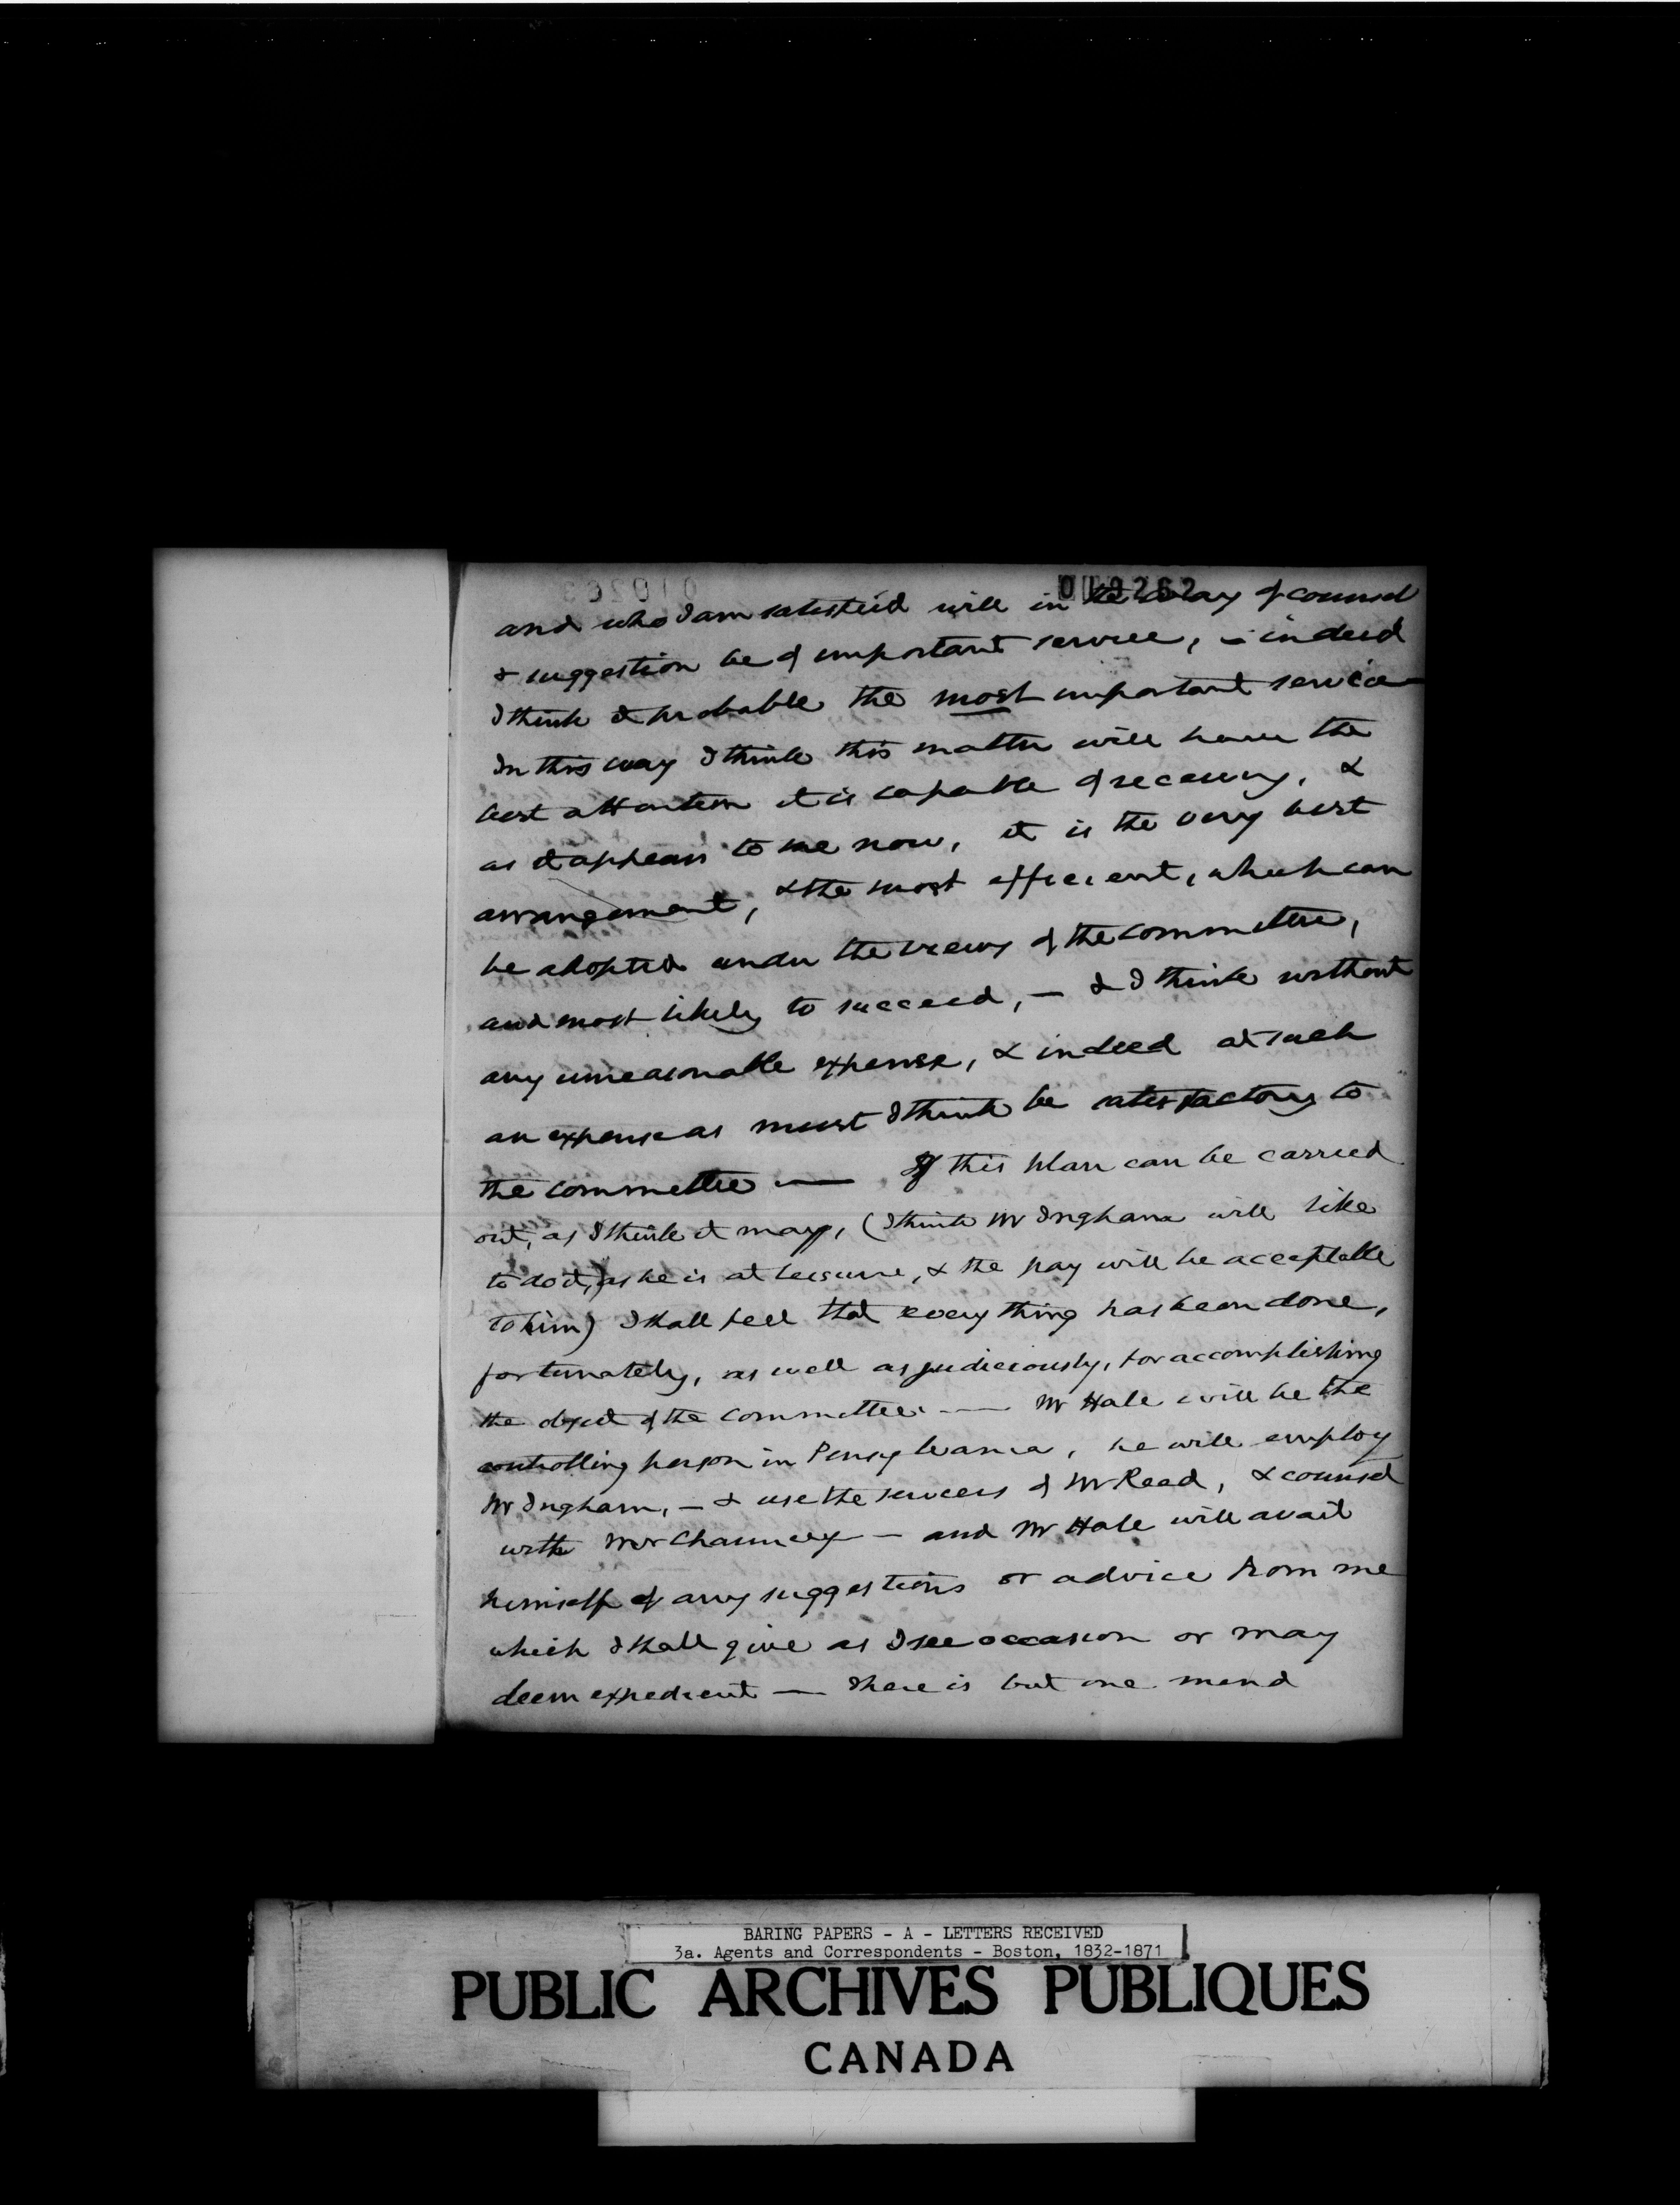 019262
and who I am satisfied will in the way of counsel
& suggestion be of important service, - indeed
I think it probable the most important service -
In this way I think this matter will have the
best attention it is capable of receiving, &
as it appears to me now, it is the very best
arrangement, & the most efficient, which can
be adopted under the views of the committee,
and most likely to succeed, - & I think without
any unreasonable expense, & indeed at such
an expense as must I think be satisfactory to
the committee — If this plan can be carried
out, as I think it may, (I think Mr Ingham will like
to do it, as he is at leisure, & the pay will be acceptable
to him) I shall feel that every thing has been done,
fortunately, as well as judiciously, for accomplishing
the object of the committee. — Mr Hale will be the
controlling person in Pensylvania, he will employ
Mr Ingham, - & use the services of Mr Read, & counsel
with Mr Chauncey - and Mr Hale will avail
himself of any suggestions or advice from me
which I shall give as I see occasion or may
deem expedient — There is but one mind
BARING PAPERS - A - LETTERS RECEIVED
3a. Agents and Correspondents - Boston, 1832-1871
PUBLIC ARCHIVES PUBLIQUES
CANADA